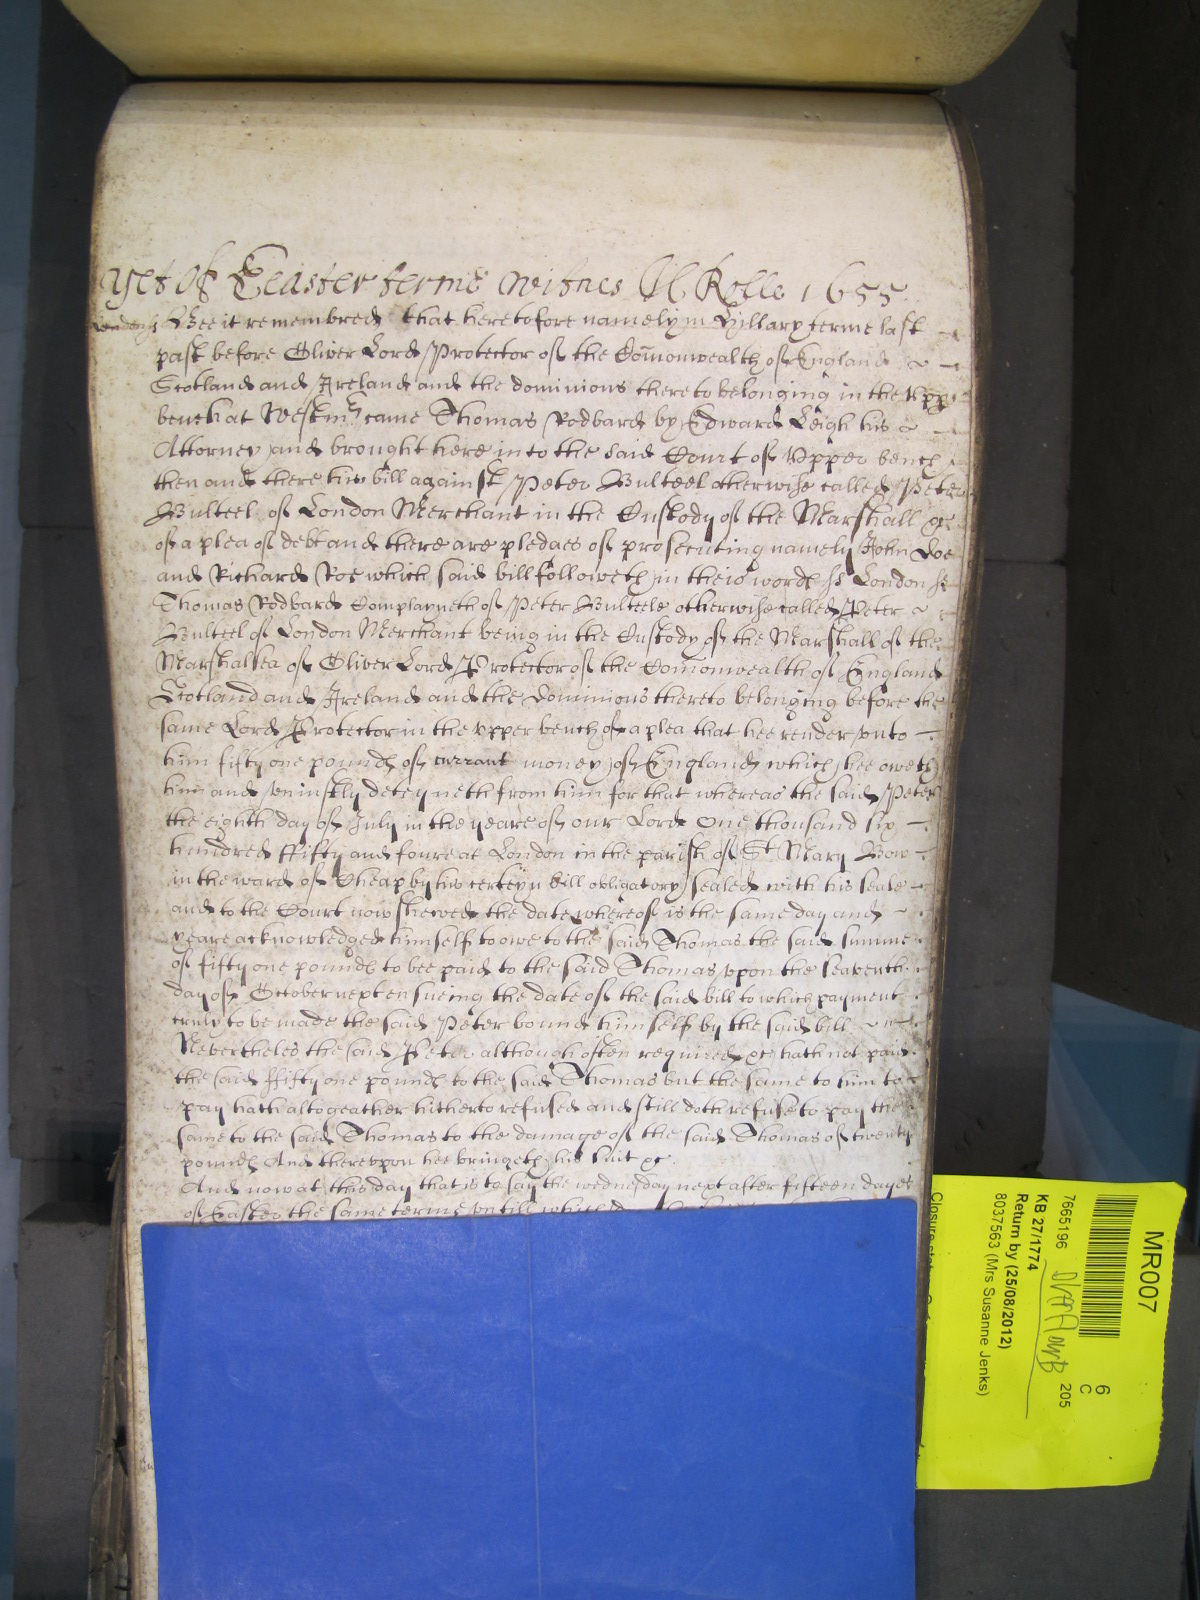 yet of Easter terme witnes H Rolle 1655
London ss Bee it remembred that heretofore namely in Hillary terme last
past before Oliver Lord Protector of the Comonwealth of England
Scotland and Ireland and the dominions thereto belonging in the Upp
bench at Westm came Thomas Rodbard by Edward Leigh his
Attorney and brought here into the said Court of Upper bench
then and there his bill against Peter Bulteel otherwise called Peter
Bulteel of London Merchant in the Custody of the Marshall &c
of a plea of debt and there are pledges of prosecuting namely John Doe
and Richard Roe which said bill followeth in theis words ss London ss
Thomas Rodbard Complayneth of Peter Bulteele otherwise called Peter
Bulteel of London Merchant being in the Custody of the Marshall of the
Marshalsea of Oliver Lord Protector of the Comonwealth of England
Scotland and Ireland and the Dominions thereto belonging before the
same Lord Protector in the upper bench of a plea that hee render unto
him fifty one pounds of currant money of England which hee oweth
him and uniustly deteyneth from him for that whereas the said Peter
the eighth day of July in the yeare of our Lord One thousand six
hundred ffifty and foure at London in the parish of St Mary Bow
in the ward of Cheap by his certeyn bill obligatory sealed with his seale
and to the Court now shewed the date whereof is the same day and
yeare acknowledged himself to owe to the said Thomas the said summe
of fifty one pounds to bee paid to the said Thomas vpon the seaventh
day of October next ensueing the date of the said bill to which payment
truly to be made the said Peter bound himself by the said bill
Nevertheles the said Peter although often required &c hath not paid
the said ffifty one pounds to the said Thomas but the same to him to
pay hath altogeather hitherto refused and still doth refuse to pay the
same to the said Thomas to the damage of the said Thomas of twenty
pounds And therevpon hee bringeth his suit &c
And now at this day that is to say the wednesday next after fifteen dayes
of Easter the same terme vntill which
MR007
6
C
205
7665196
KB 27/1774
Return by (25/08/2012)
8037563 (Mrs Susanne Jenks)
Closure